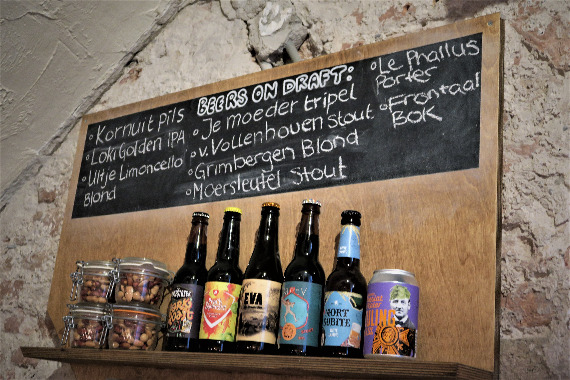 BEERS ON DRAFT:
Kornuit pils
Loki Golden IPA
Uiltje Limoncello
Blond
Je moeder tripel
v. Vollenhoven Stout
Grimbergen Blond
Moersleutel Stout
Le Phallus
Porter
Frontaal
BOK
EVA